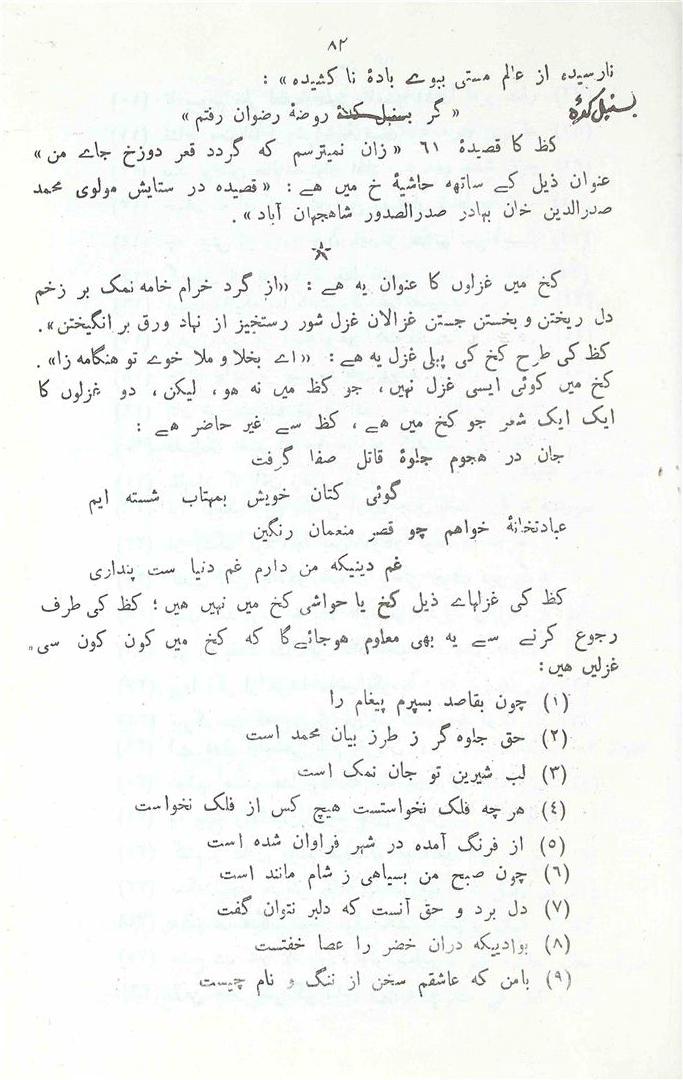 ۸۲
نارسیده، از عالم مستی ببوے بادۂ نا کشیده» :
« گر بسنبل کدۂ روضۂ رضوان رفتم »
بسنبل کدۂ
کظ کا قصیدۂ ٦١ « زان نمیترسم که گردد قعر دوزخ جاے من »
عنوان ذیل کے ساتهه حاشیۂ خ میں هے : « قصیده در ستایش مولوی محمد
صدرالدین خان بہادر صدرالصدور شاهجہان آباد ».
کخ میں غزلوں کا عنوان یه هے : «از گرد خرام خامه نمک بر زخم
دل ریختن و بخستن جستن غزالان غزل شور رستخیز از نہاد ورق بر انگیختن».
کظ کی طرح کخ کی پہلی غزل یه هے : «اے بخلا و ملا خوے تو هنگامه زا».
کخ میں کوئی ایسی غزل نہیں، جو کظ میں نه هو، لیکن، دو غزلوں کا
ایک ایک شعر جو کخ میں هے، کظ سے غیر حاضر هے :
جان در هجوم جلوۂ قاتل صفا گرفت
گوئی کتان خویش بمہتاب شسته ایم
عبادتخانۂ خواهم چو قصر منعمان رنگین
غم دینیکه من دارم غم دنیا ست پنداری
کظ کی غزلہاے ذیل کخ یا حواشی کخ میں نہیں هیں؛ کظ کی طرف
رجوع کرنے سے یه بهی معلوم هوجائےگا که کخ میں کون کون سی
غزلیں هیں:
(١) چون بقاصد بسپرم پیغام را
(٢) حق جلوه گر ز طرز بیان محمد است
(٣) لب شیرین تو جان نمک است
(٤) هرچه فلک نخواستست هیچ کس از فلک نخواست
(٥) از فرنگ آمده در شہر فراوان شده است
(٦) چون صبح من بسیاهی ز شام مانند است
(٧) دل برد و حق آنست که دلبر نتوان گفت
(٨) بوادییکه دران خضر را عصا خفتست
(٩) بامن که عاشقم سخن از ننگ و نام چیست